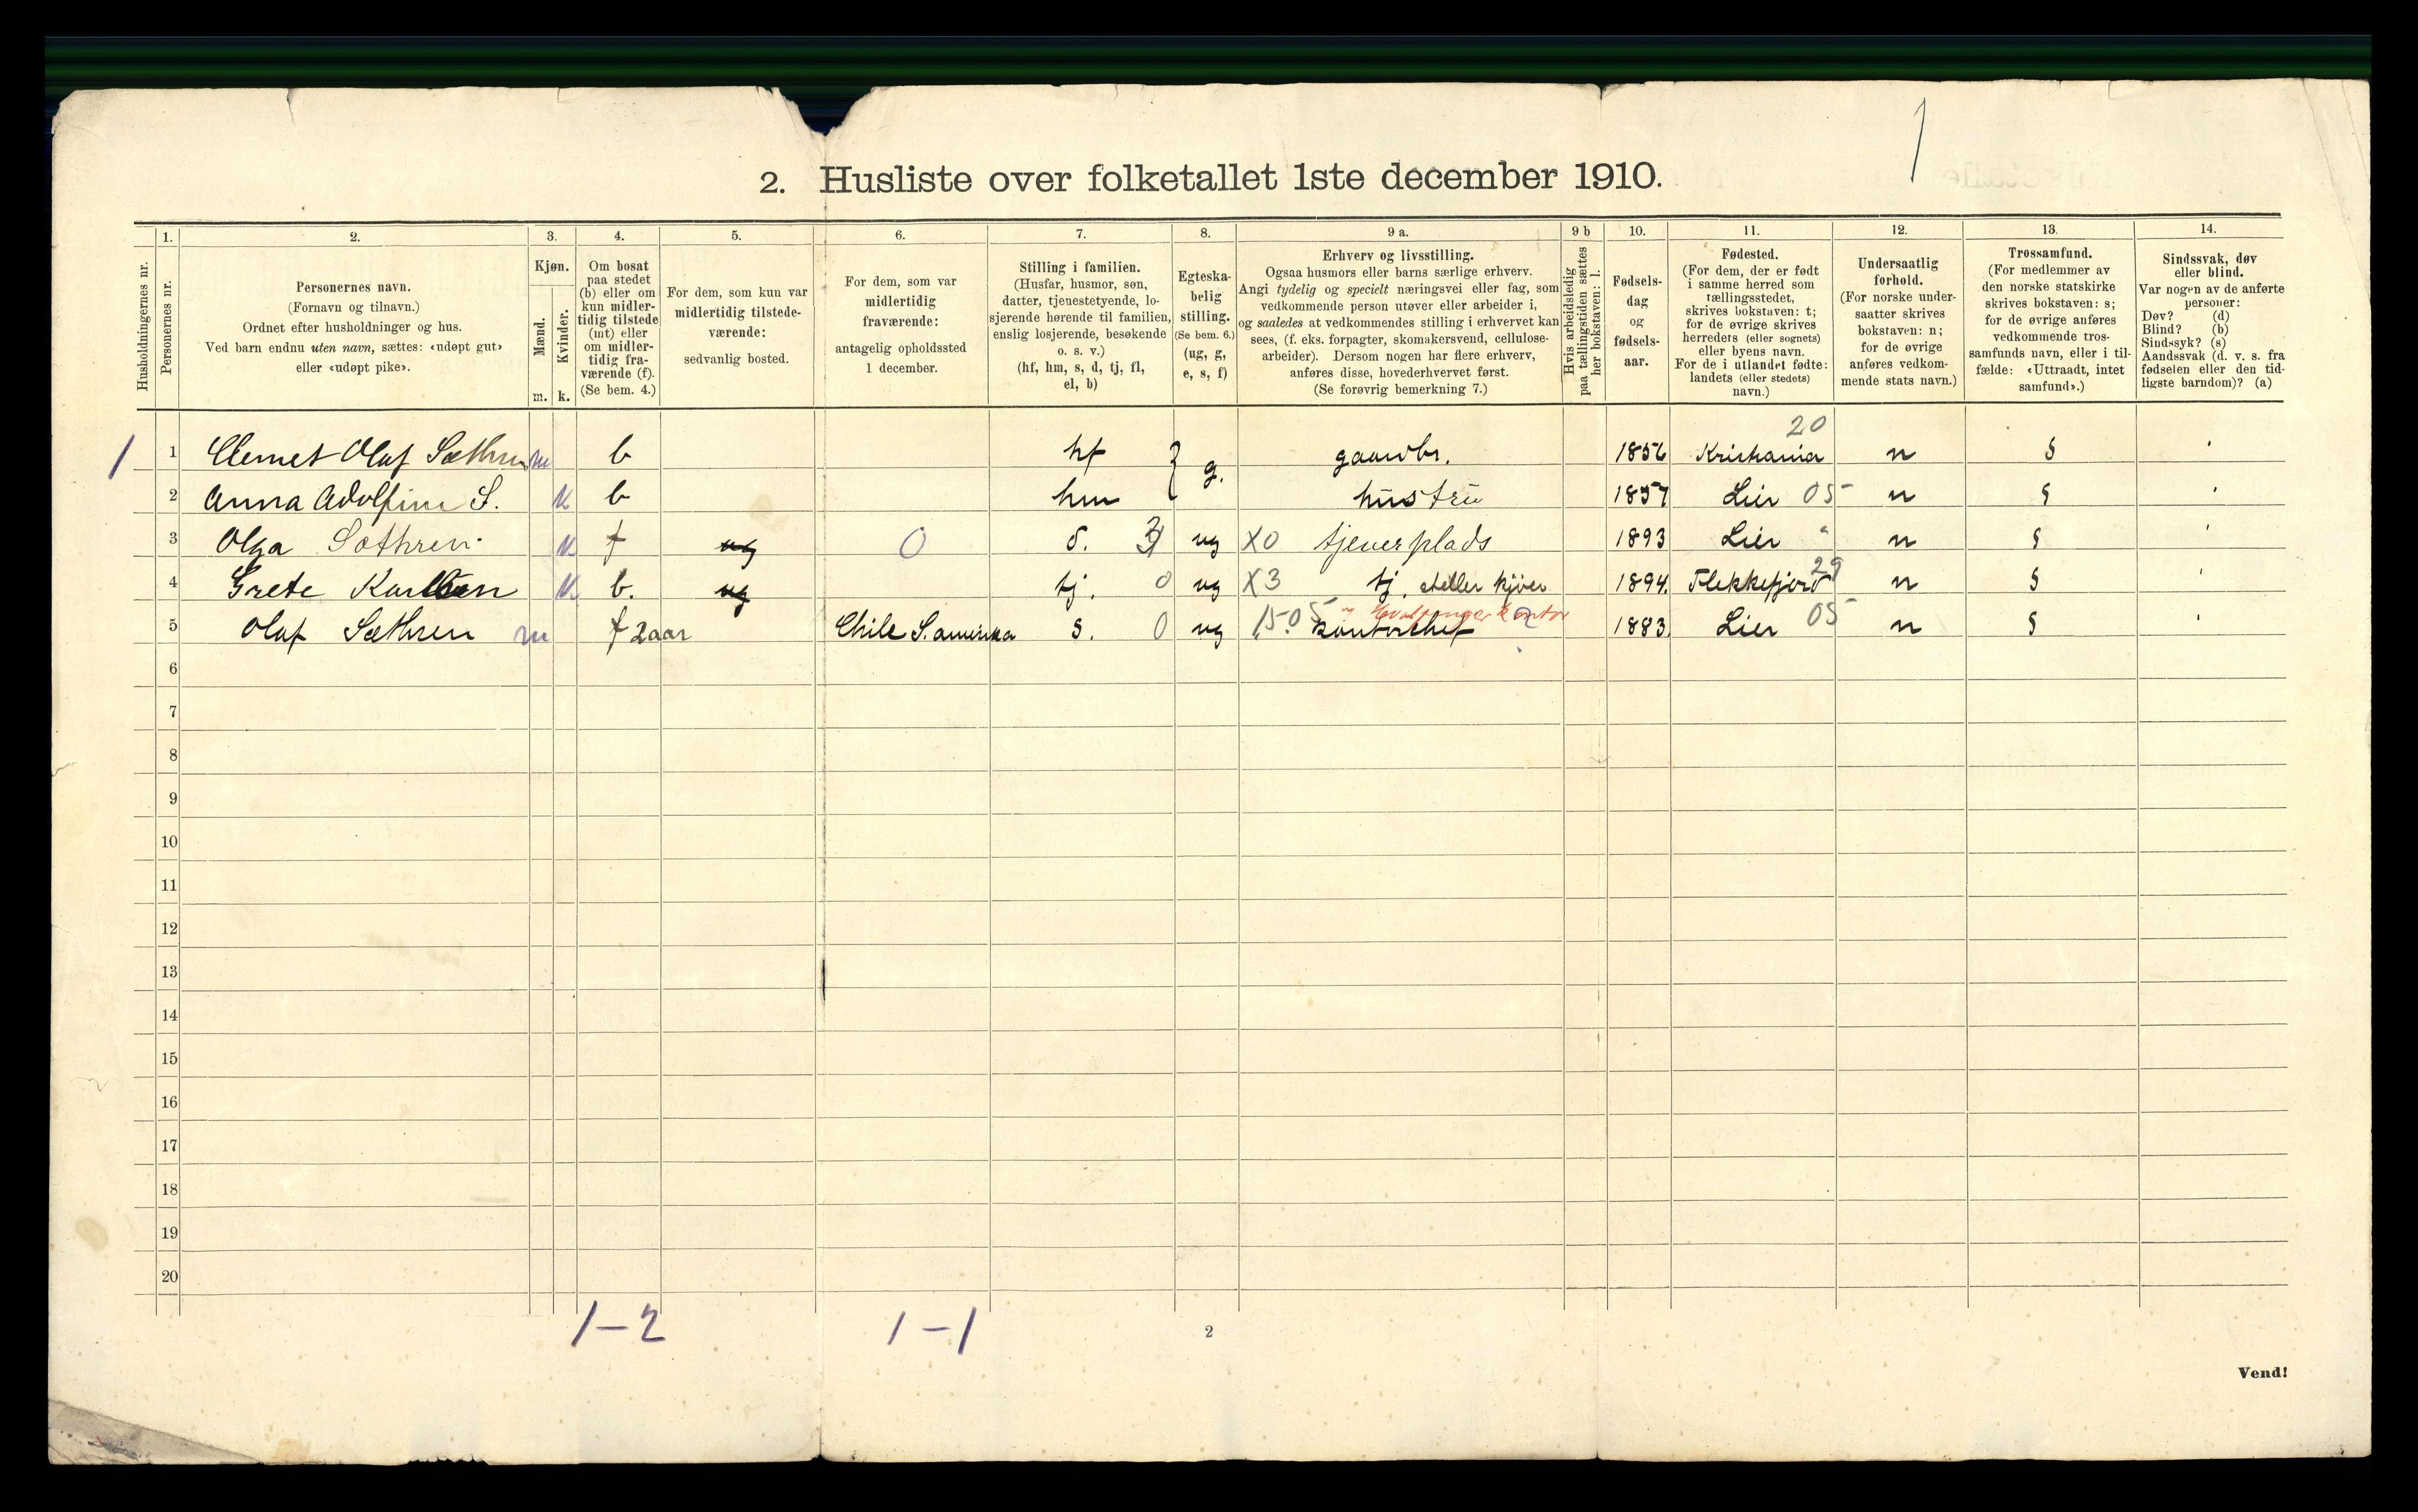 1
2. Husliste over folketallet 1ste december 1910.
Husholdningernes nr.
1.
Personernes nr.
2.
Personernes navn.
(Fornavn og tilnavn.)
Ordnet efter husholdninger og hus.
Ved barn endnu uten navn, sættes: «udøpt gut»
eller «udøpt pike».
3.
Kjøn.
Mænd.
Kvinder.
m. k.
4.
Om bosat
paa stedet
(b) eller om
kun midler-
tidig tilstede
(mt) eller
om midler-
tidig fra-
værende (f).
(Se bem. 4.)
5.
For dem, som kun var
midlertidig tilstede-
værende:
sedvanlig bosted.
6.
For dem, som var
midlertidig
fraværende:
antagelig opholdssted
1 december.
7.
Stilling i familien.
(Husfar, husmor, søn,
datter, tjenestetyende, lo-
sjerende hørende til familien,
enslig losjerende, besøkende
o. s. v.)
(hf, hm, s, d, tj, fl,
el, b)
8.
Egteska-
belig
stilling.
(Se bem. 6.)
(ug, g,
e, s, f)
9 a.
Erhverv og livsstilling.
Ogsaa husmors eller barns særlige erhverv.
Angi tydelig og specielt næringsvei eller fag, som
vedkommende person utøver eller arbeider i,
og saaledes at vedkommendes stilling i erhvervet kan
sees, (f. eks. forpagter, skomakersvend, cellulose-
arbeider). Dersom nogen har flere erhverv,
anføres disse, hovederhvervet først.
(Se forøvrig bemerkning 7.)
9 b
Hvis arbeidsledig
paa tællingstiden sættes
her bokstaven: l.
10.
Fødsels-
dag
og
fødsels-
aar.
11.
Fødested.
(For dem, der er født
i samme herred som
tællingsstedet,
skrives bokstaven: t;
for de øvrige skrives
herredets (eller sognets)
eller byens navn.
For de i utlandet fødte:
landets (eller stedets)
navn.)
12.
Undersaatlig
forhold.
(For norske under-
saatter skrives
bokstaven: n;
for de øvrige
anføres vedkom-
mende stats navn.)
13.
Trossamfund.
(For medlemmer av
den norske statskirke
skrives bokstaven: s;
for de øvrige anføres
vedkommende tros-
samfunds navn, eller i til-
fælde: «Uttraadt, intet
samfund».)
14.
Sindssvak, døv
eller blind.
Var nogen av de anførte
personer:
Døv? (d)
Blind? (b)
Sindssyk? (s)
Aandssvak (d. v. s. fra
fødselen eller den tid-
ligste barndom)? (a)
20
1 1 Clemet Olaf Sæthren m b hf } g. gaardbr. 1856 Kristiania n s
2 Anna Adolfine S. k b hm hustru 1857 Lier 05 n s
3 Olga Sæthren k f ug 0 d. 3 ug X0 tjenerplads 1893 Lier " n s
4 Grete Karlsen k b. ug tj. 0 ug X3 tj. steller kjøer 1894. Flekkefjord 29 n s
5 Olaf Sæthren m f 2 aar Chile S. amerika s. 0 ug 15.05 kontorchef 1883. Lier 05 n s
6
7
8
9
10
11
12
13
14
15
16
17
18
19
20
1-2 1-1
2
Vend!